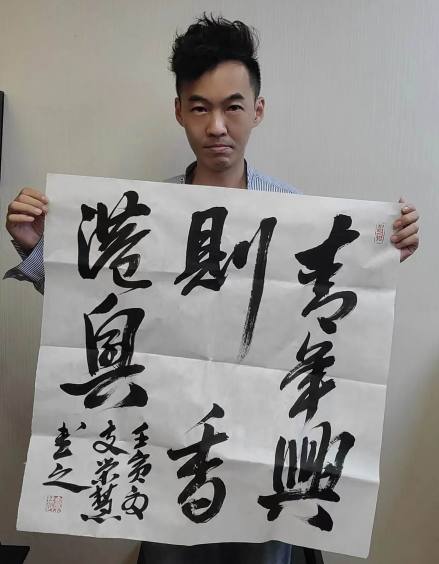 青年興
則香
港興
壬寅
榮慧
書之